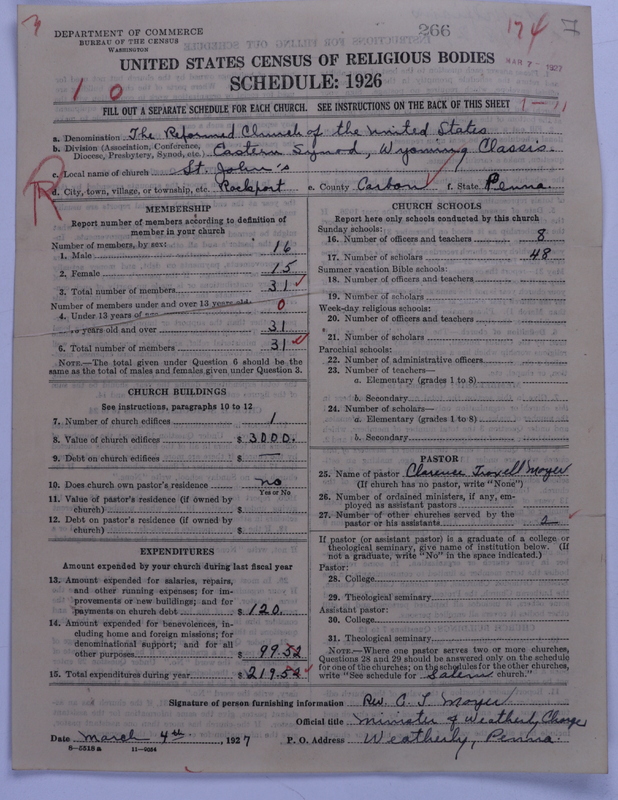 DEPARTMENT OF COMMERCE
BUREAU OF THE CENSUS
WASHINGTON
266
174
MAR 7 - 1927
UNITED STATES CENSUS OF RELIGIOUS BODIES
SCHEDULE: 1926
1 0
FILL OUT A SEPARATE SCHEDULE FOR EACH CHURCH. SEE INSTRUCTIONS ON THE BACK OF THIS SHEET
1-11
a. Denomination The Reformed Church of the United States
b. Division (Association, Conference, Diocese, Presbytery, Synod, etc.) Eastern Synod, Wyoming Classis.
c. Local name of church St. John's
d. City, town, village, or township, etc. Rockport e. County Carbon f. State Penna.
R
MEMBERSHIP
Report number of members according to definition of
member in your church
Number of members, by sex:
1. Male 16
2. Female 15
3. Total number of members 31
Number of members under and over 13 years old:
4. Under 13 years of 0
years old and over 31
6. Total number of members 31
NOTE.—The total given under Question 6 should be the
same as the total of males and females given under Question 3.
CHURCH BUILDINGS
See instructions, paragraphs 10 to 12
7. Number of church edifices 1
8. Value of church edifices $ 3000.
9. Debt on church edifices $ —
10. Does church own pastor's residence no
Yes or No
11. Value of pastor's residence (if owned by
church) $
12. Debt on pastor's residence (if owned by
church) $
EXPENDITURES
Amount expended by your church during last fiscal year
13. Amount expended for salaries, repairs,
and other running expenses; for im-
provements or new buildings; and for
payments on church debt $ 120.
14. Amount expended for benevolences, in-
cluding home and foreign missions; for
denominational support; and for all
other purposes $ 99.52
15. Total expenditures during year $ 219.52
CHURCH SCHOOLS
Report here only schools conducted by this church
Sunday schools:
16. Number of officers and teachers 8
17. Number of scholars 48
Summer vacation Bible schools:
18. Number of officers and teachers
19. Number of scholars
Week-day religious schools:
20. Number of officers and teachers
21. Number of scholars
Parochial schools:
22. Number of administrative officers
23. Number of teachers—
a. Elementary (grades 1 to 8)
b. Secondary
24. Number of scholars—
a. Elementary (grades 1 to 8)
b. Secondary
PASTOR
25. Name of pastor Clarence Troxell Moyer
(If church has no pastor, write "None")
26. Number of ordained ministers, if any, em-
ployed as assistant pastors
27. Number of other churches served by the
pastor or his assistants 2
If pastor (or assistant pastor) is a graduate of a college or
theological seminary, give name of institution below. (If
not a graduate, write "No" in the space indicated.)
Pastor:
28. College
29. Theological seminary
Assistant pastor:
30. College
31. Theological seminary
NOTE.—Where one pastor serves two or more churches,
Questions 28 and 29 should be answered only on the schedule
for one of the churches; on the schedules for the other churches,
write "See schedule for Salem church."
Signature of person furnishing information Rev. C. T. Moyer
Official title Minister of Weatherly Charge
Date March 4th, 1927 P. O. Address Weatherly, Penna.
8-5518a 11-9054